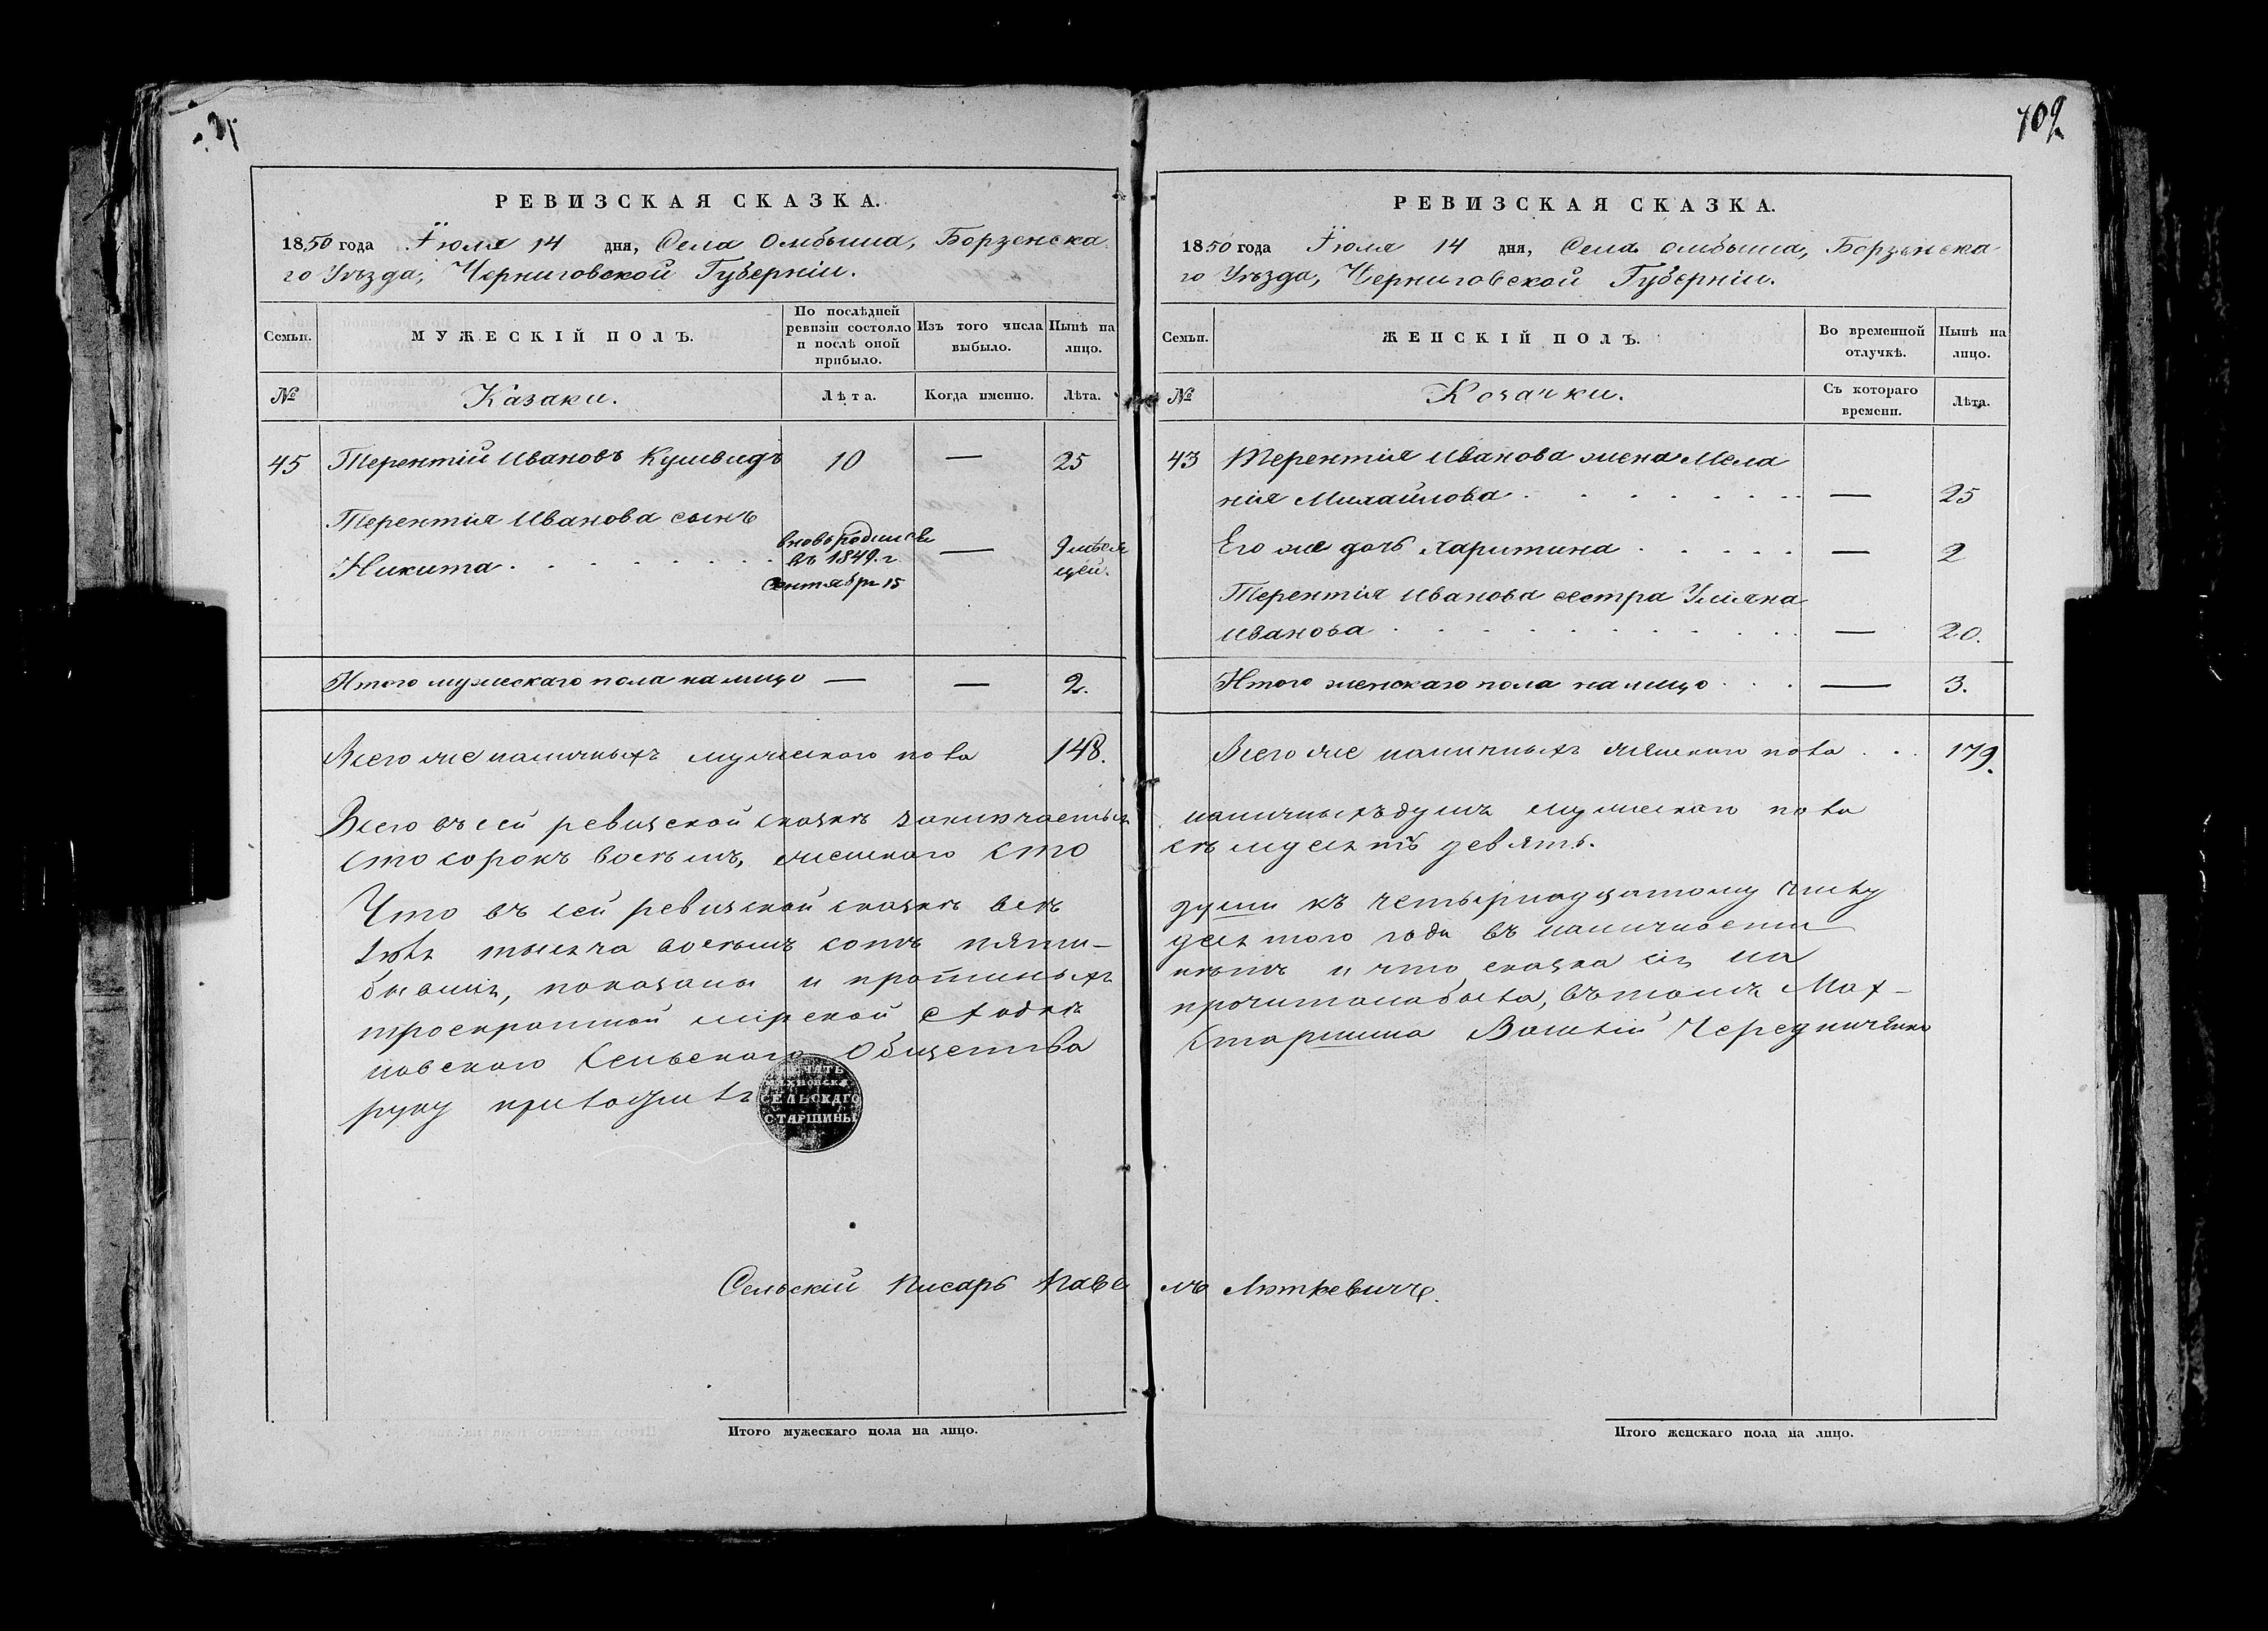 РЕВИЗСКАЯ СКАЗКА.
1850 года Іюля 14 дня, Села Омбыша, Борзенска
го Уѣзда, Черниговской Губерніи.
Семьи.
МУЖЕСКІЙ ПОЛЪ.
По послѣдней ревизіи состояло и послѣ оной прибыло.
Изъ того числа выбыло.
Нынѣ на лицо.
№
Казаки.
Лѣта.
Когда именно.
Лѣта.
45 Терентій Ивановъ 10 — 25
Терентія Иванова сынъ
Никита . . . . . . . вновь родился въ 1849. г. Сентября 15 — 9 мѣся цей.
Итого мужескаго пола на лицо — — 2.
Всего же наличныхъ мужеского пола 148.
Всего въ сей ревизской сказкѣ заключается
сто сорокъ восемъ, женского сто
Что въ сей ревизской сказкѣ всѣ
Іюля тысяча восемъ сотъ пяти-
бывшія, показаны и
троекратной мірской сходкѣ
новского Сельского Общества
руку приложилъ
ПЕЧАТЬ
МАХНОВСКА
СЕЛЬСКАГО
СТАРШИНЫ
Сельскій Писарь Павe
Итого мужескаго пола на лицо.
109
РЕВИЗСКАЯ СКАЗКА.
1850 года Іюля 14 дня, Села Омбыша, Борзенска
го Уѣзда, Черниговской Губерніи.
Семьи.
ЖЕНСКІЙ ПОЛЪ.
Во временной отлучкѣ.
Нынѣ на лицо.
№
Козачки.
Съ котораго времени.
Лѣта.
43 Терентія Иванова жена Мела
нія Михайлова . . . . . . . — 25
Его же дочь Харитина . . . . . — 2
Терентія Иванова сестра Уліяна
Иванова . . . . . . . . . — 20.
Итого женскаго пола на лицо . . . — 3.
Всего же наличныхъ женского пола . . . 179.
наличныхъ душъ мужеского пола
семдесятъ девять.
души къ четырнадцатому числу
десятого года въ наличности
нѣтъ и что сказка сія на
прочитана была, въ томъ Мах-
Старшина Василій Чередниченко
лъ Люткевичъ.
Итого женскаго пола на лицо.